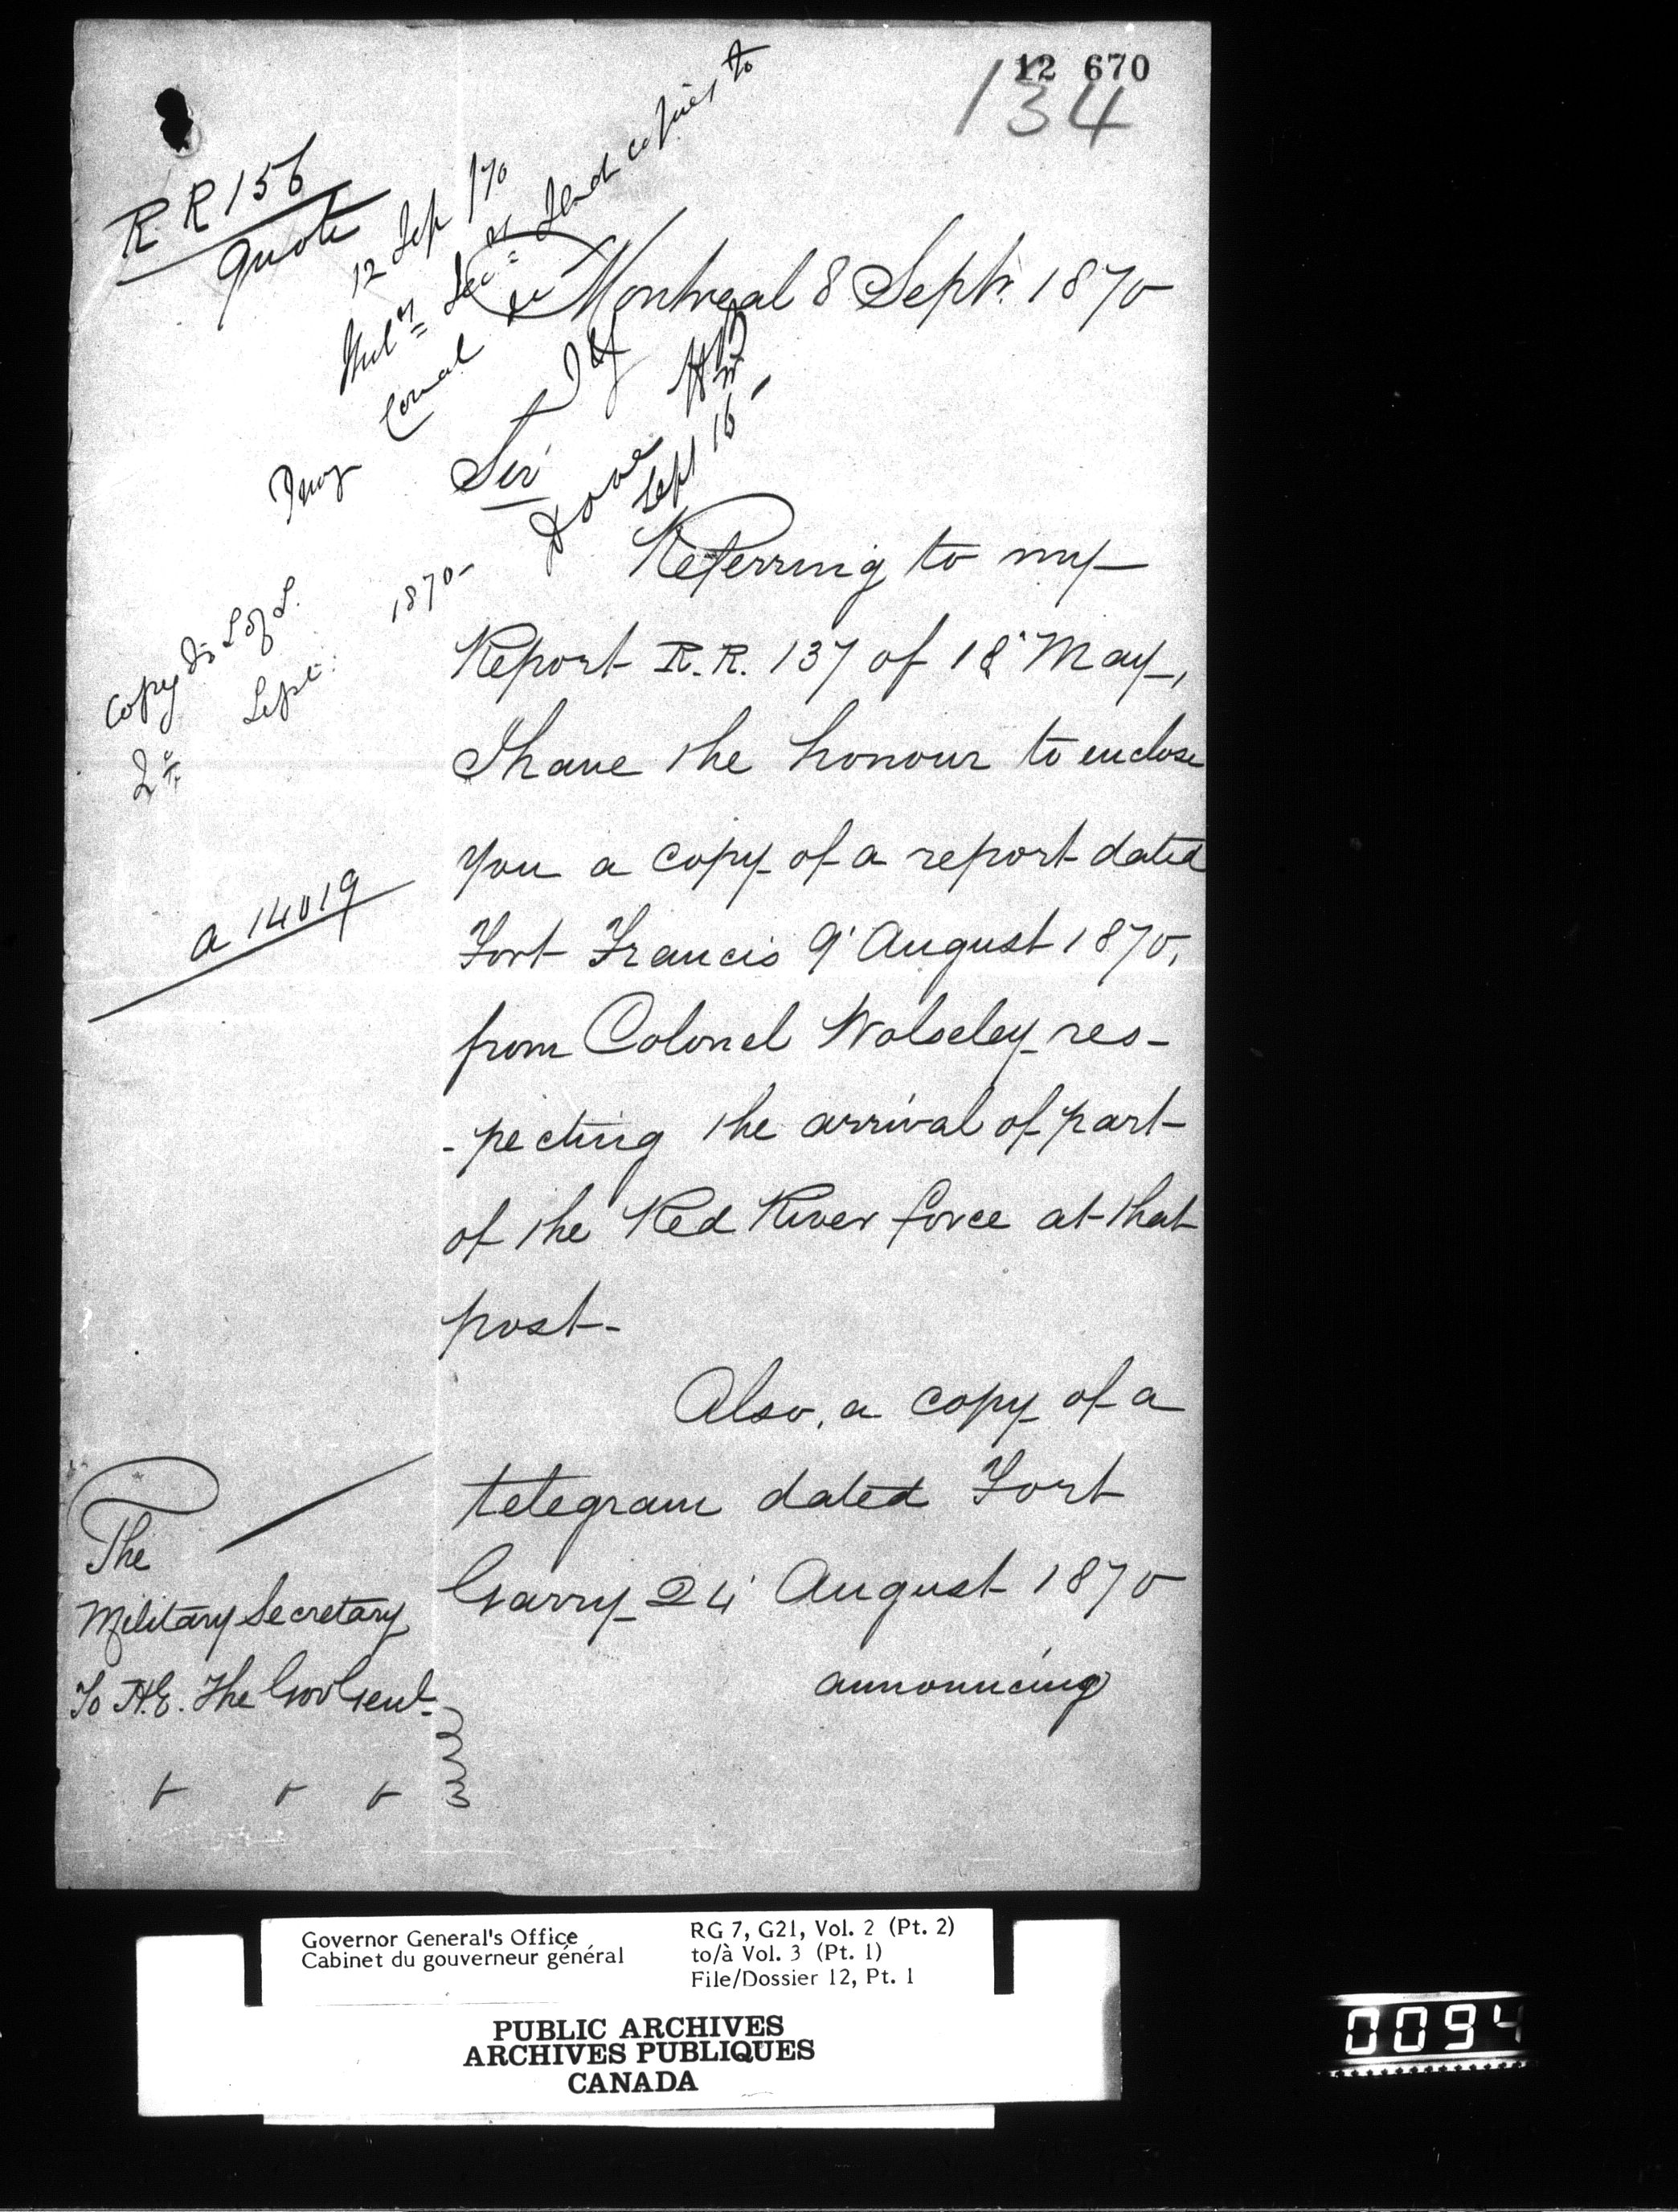 12 670
134
R. R 156
quote
12 Sep /70
send copies to
Montreal 8 Septr. 1870
Sir
Done
Sept 16 -
Referring to my
Report R.R. 137 of 18 May,
I have the honour to enclose
you a copy of a report dated
Fort Francis 9 August 1870,
from Colonel Wolseley res-
-pecting the arrival of part
of the Red River force at that
post-
Also, a copy of a
telegram dated Fort
Garry 24 August 1870
announcing
Copy
Sept:
1870-
a 14019
The
Military Secretary
To H.E. The Gov Genl.
Governor General's Office
Cabinet du gouverneur général
RG 7, G21, Vol. 2 (Pt. 2)
to/à Vol. 3 (Pt. 1)
File/Dossier 12, Pt. 1
PUBLIC ARCHIVES
ARCHIVES PUBLIQUES
CANADA
0094